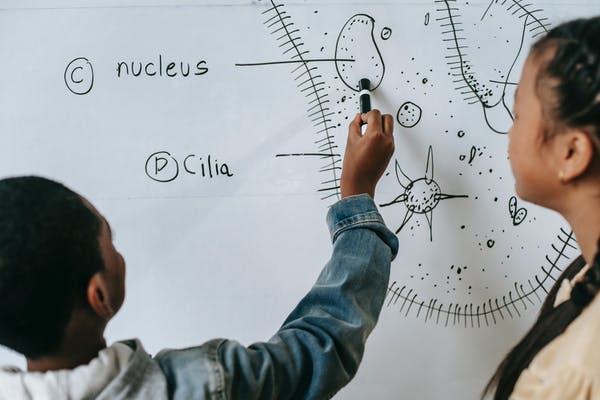 C nucleus
D Cilia